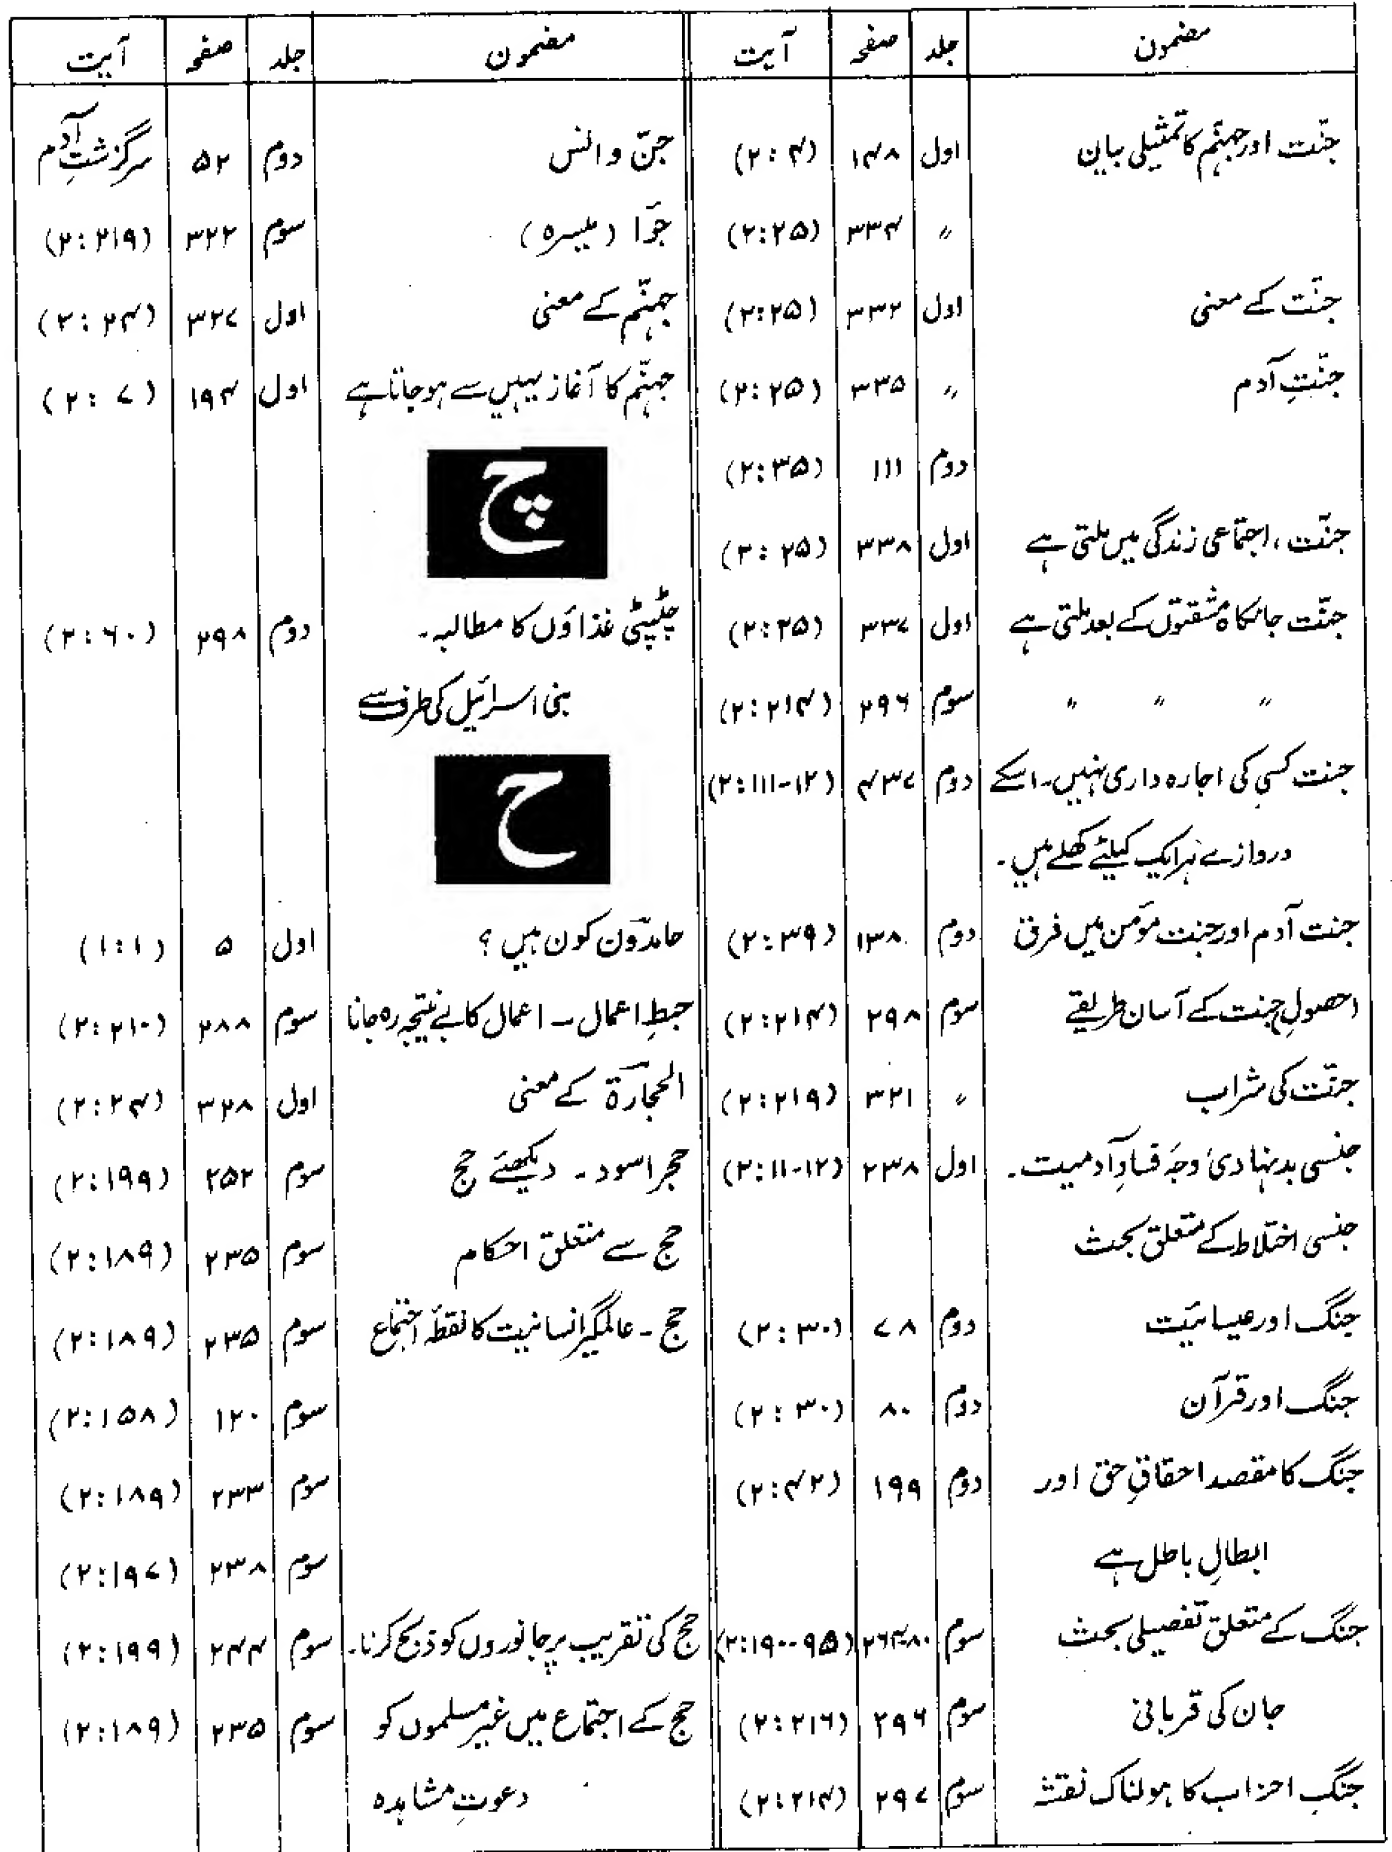 مضمون جلد صفحہ آیت
جنّت اور جہنّم کا تمثیلی بیان اول ۱۴۸ (۲:۴)
〃 ۳۳۴ (۲:۲۵)
جنّت کے معنی اول ۳۳۲ (۲:۲۵)
جنّتِ آدم 〃 ۳۳۵ (۲:۲۵)
دوم ۱۱۱ (۲:۳۵)
جنّت، اجتماعی زندگی میں ملتی ہے اول ۳۳۸ (۲:۲۵)
جنّت جانکاہ مشقتوں کے بعد ملتی ہے اول ۳۳۷ (۲:۲۵)
〃 〃 〃 سوم ۲۹۶ (۲:۲۱۴)
جنت کسی کی اجارہ داری نہیں۔ اسکے دوم ۴۳۷ (۲:۱۱۱-۱۲)
دروازے ہر ایک کیلئے کھلے ہیں۔
جنت آدم اور جنت مؤمن میں فرق دوم ۱۳۸ (۲:۳۹)
احصولِ جنت کے آسان طریقے سوم ۲۹۸ (۲:۲۱۴)
جنّت کی شراب 〃 ۳۲۱ (۲:۲۱۹)
جنسی بدنہادی وجۂ فسادِ آدمیت۔ اول ۲۳۸ (۲:۱۱-۱۲)
جنسی اختلاط کے متعلق بحث
جنگ اور عیسائیت دوم ۷۸ (۲:۳۰)
جنگ اور قرآن دوم ۸۰ (۲:۳۰)
جنگ کا مقصد احقاقِ حق اور دوم ۱۹۹ (۲:۴۲)
ابطالِ باطل ہے
جنگ کے متعلق تفصیلی بحث سوم ۲۶۴،۸۰ (۲:۱۹۰-۹۵)
جان کی قربانی سوم ۲۹۶ (۲:۲۱۶)
جنگِ احزاب کا ہولناک نقشہ سوم ۲۹۷ (۲:۲۱۴)
مضمون جلد صفحہ آیت
جنّ و انس دوم ۵۲ سرگزشتِ آدم
جُوَا (میسرہ) سوم ۳۲۲ (۲:۲۱۹)
جہنّم کے معنی اول ۳۲۷ (۲:۲۴)
جہنّم کا آغاز یہیں سے ہو جاتا ہے اول ۱۹۴ (۲:۷)
چ
چٹپٹی غذاؤں کا مطالبہ۔ دوم ۲۹۸ (۲:۶۰)
بنی اسرائیل کی طرف سے
ح
حامدّون کون ہیں؟ اول ۵ (۱:۱)
حبطِ اعمال ۔ اعمال کا بے نتیجہ رہ جانا سوم ۲۸۸ (۲:۲۱۰)
الحجارۃ کے معنی اول ۳۲۸ (۲:۲۴)
حجر اسود۔ دیکھئے حج سوم ۲۵۲ (۲:۱۹۹)
حج سے متعلق احکام سوم ۲۳۵ (۲:۱۸۹)
حج۔ عالمگیر انسانیت کا نقطۂ اجتماع سوم ۲۳۵ (۲:۱۸۹)
سوم ۱۲۰ (۲:۱۵۸)
سوم ۲۳۳ (۲:۱۸۹)
سوم ۲۳۸ (۲:۱۹۷)
حج کی تقریب پر جانوروں کو ذبح کرنا۔ سوم ۲۴۴ (۲:۱۹۹)
حج کے اجتماع میں غیر مسلموں کو سوم ۲۳۵ (۲:۱۸۹)
دعوتِ مشاہدہ